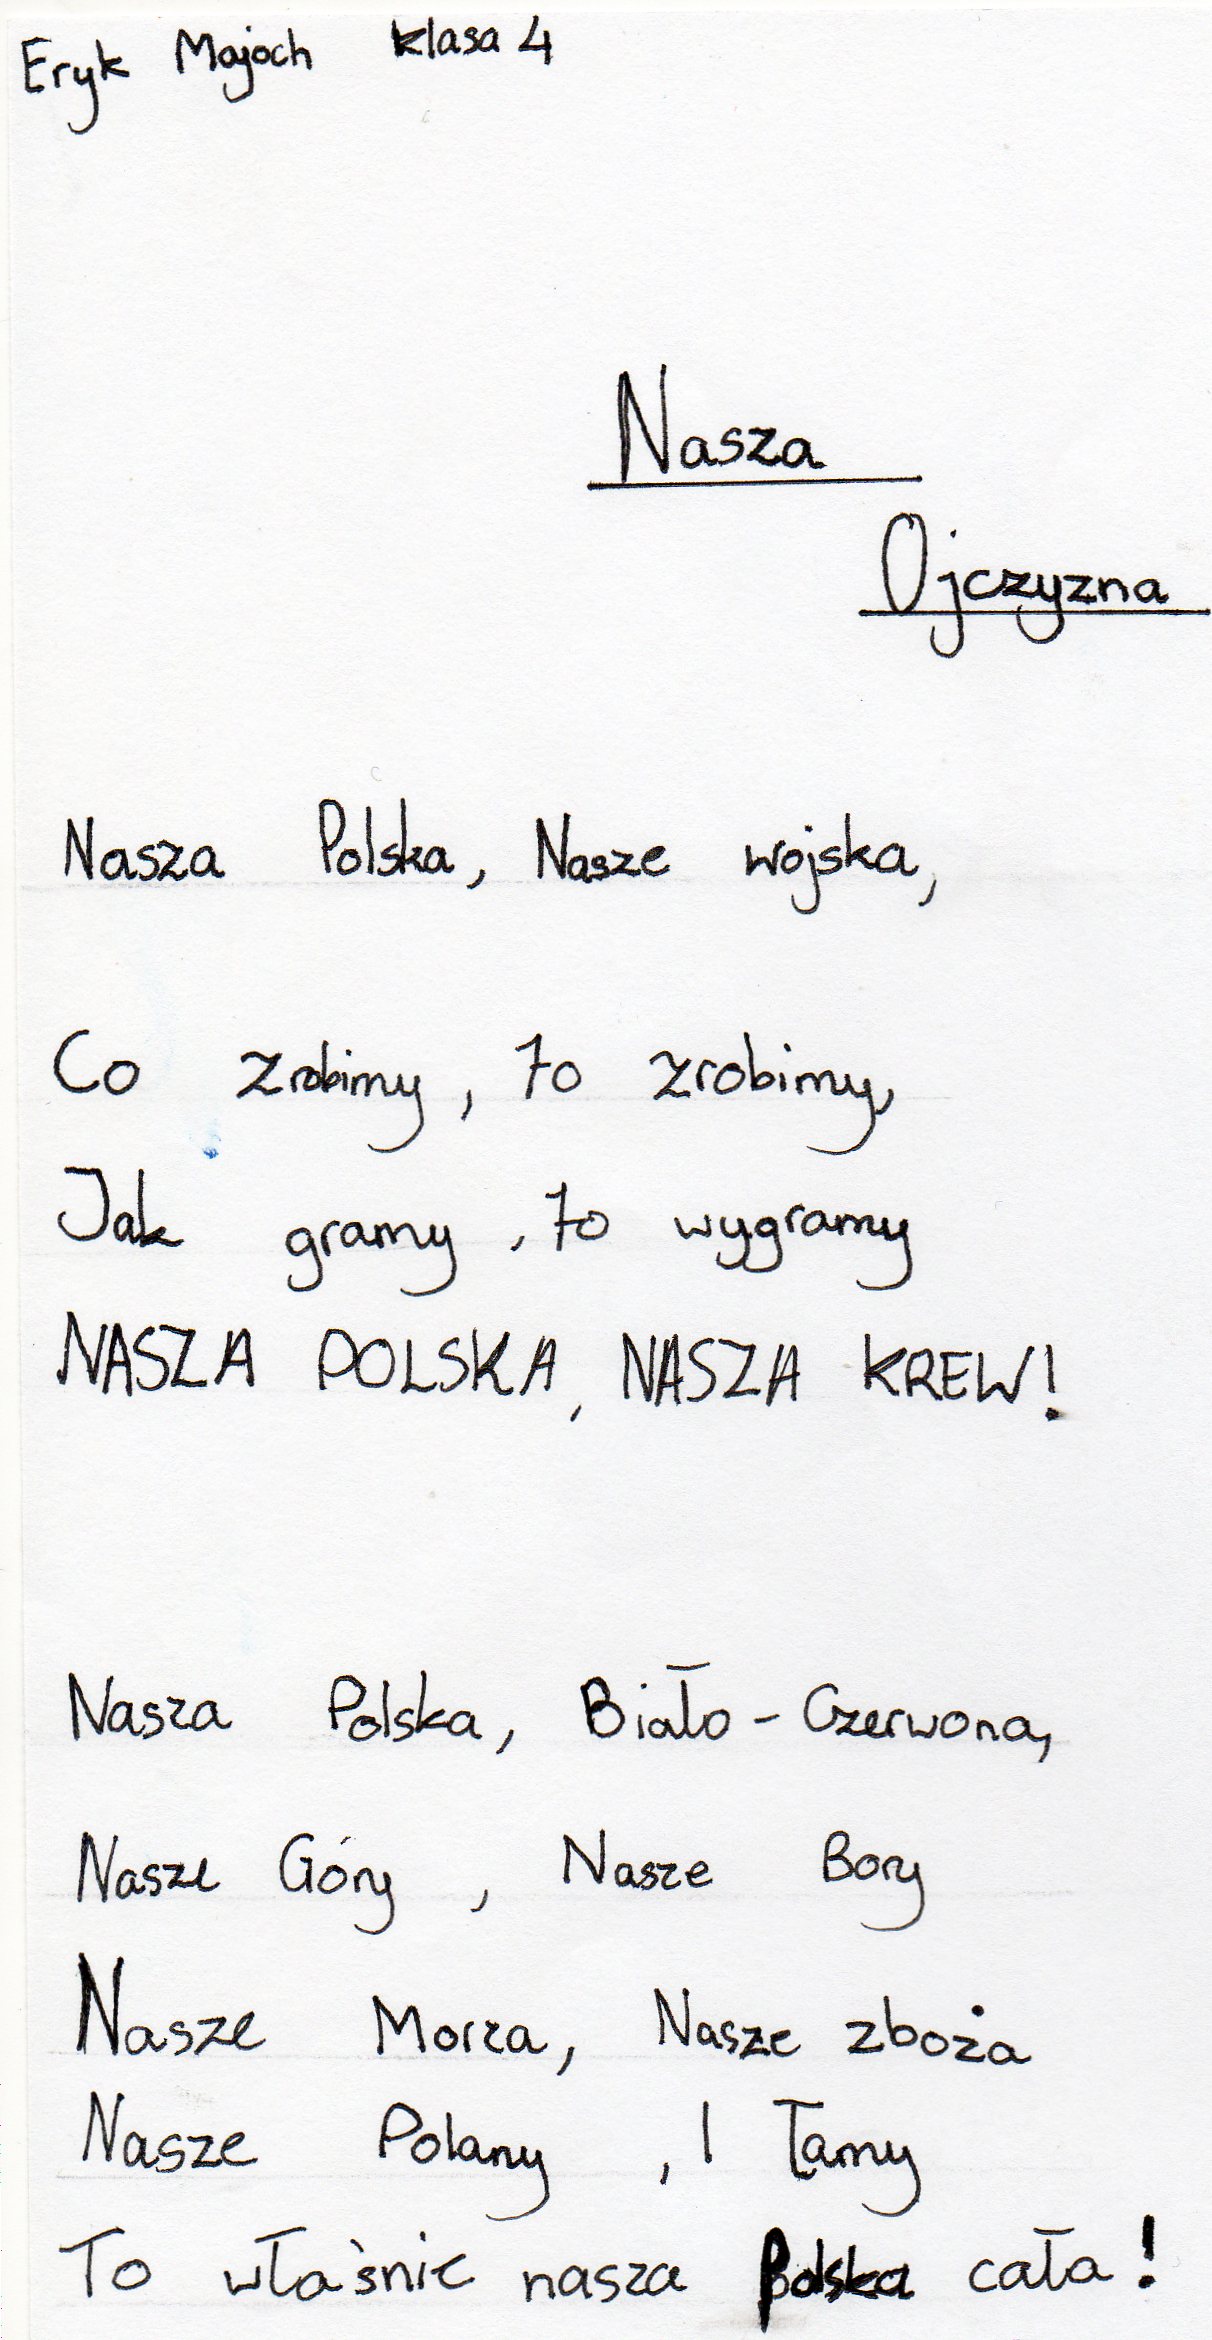 Eryk Majoch klasa 4
Nasza
Ojczyzna
Nasza Polska, Nasze wojska,
Co zrobimy, to zrobimy,
Jak gramy, to wygramy
NASZA POLSKA, NASZA KREW!
Nasza Polska, Biało-Czerwona,
Nasze Góry, Nasze Bory
Nasze Morza, Nasze zboża
Nasze Polany, I Łamy
To właśnie nasza Polska cała!